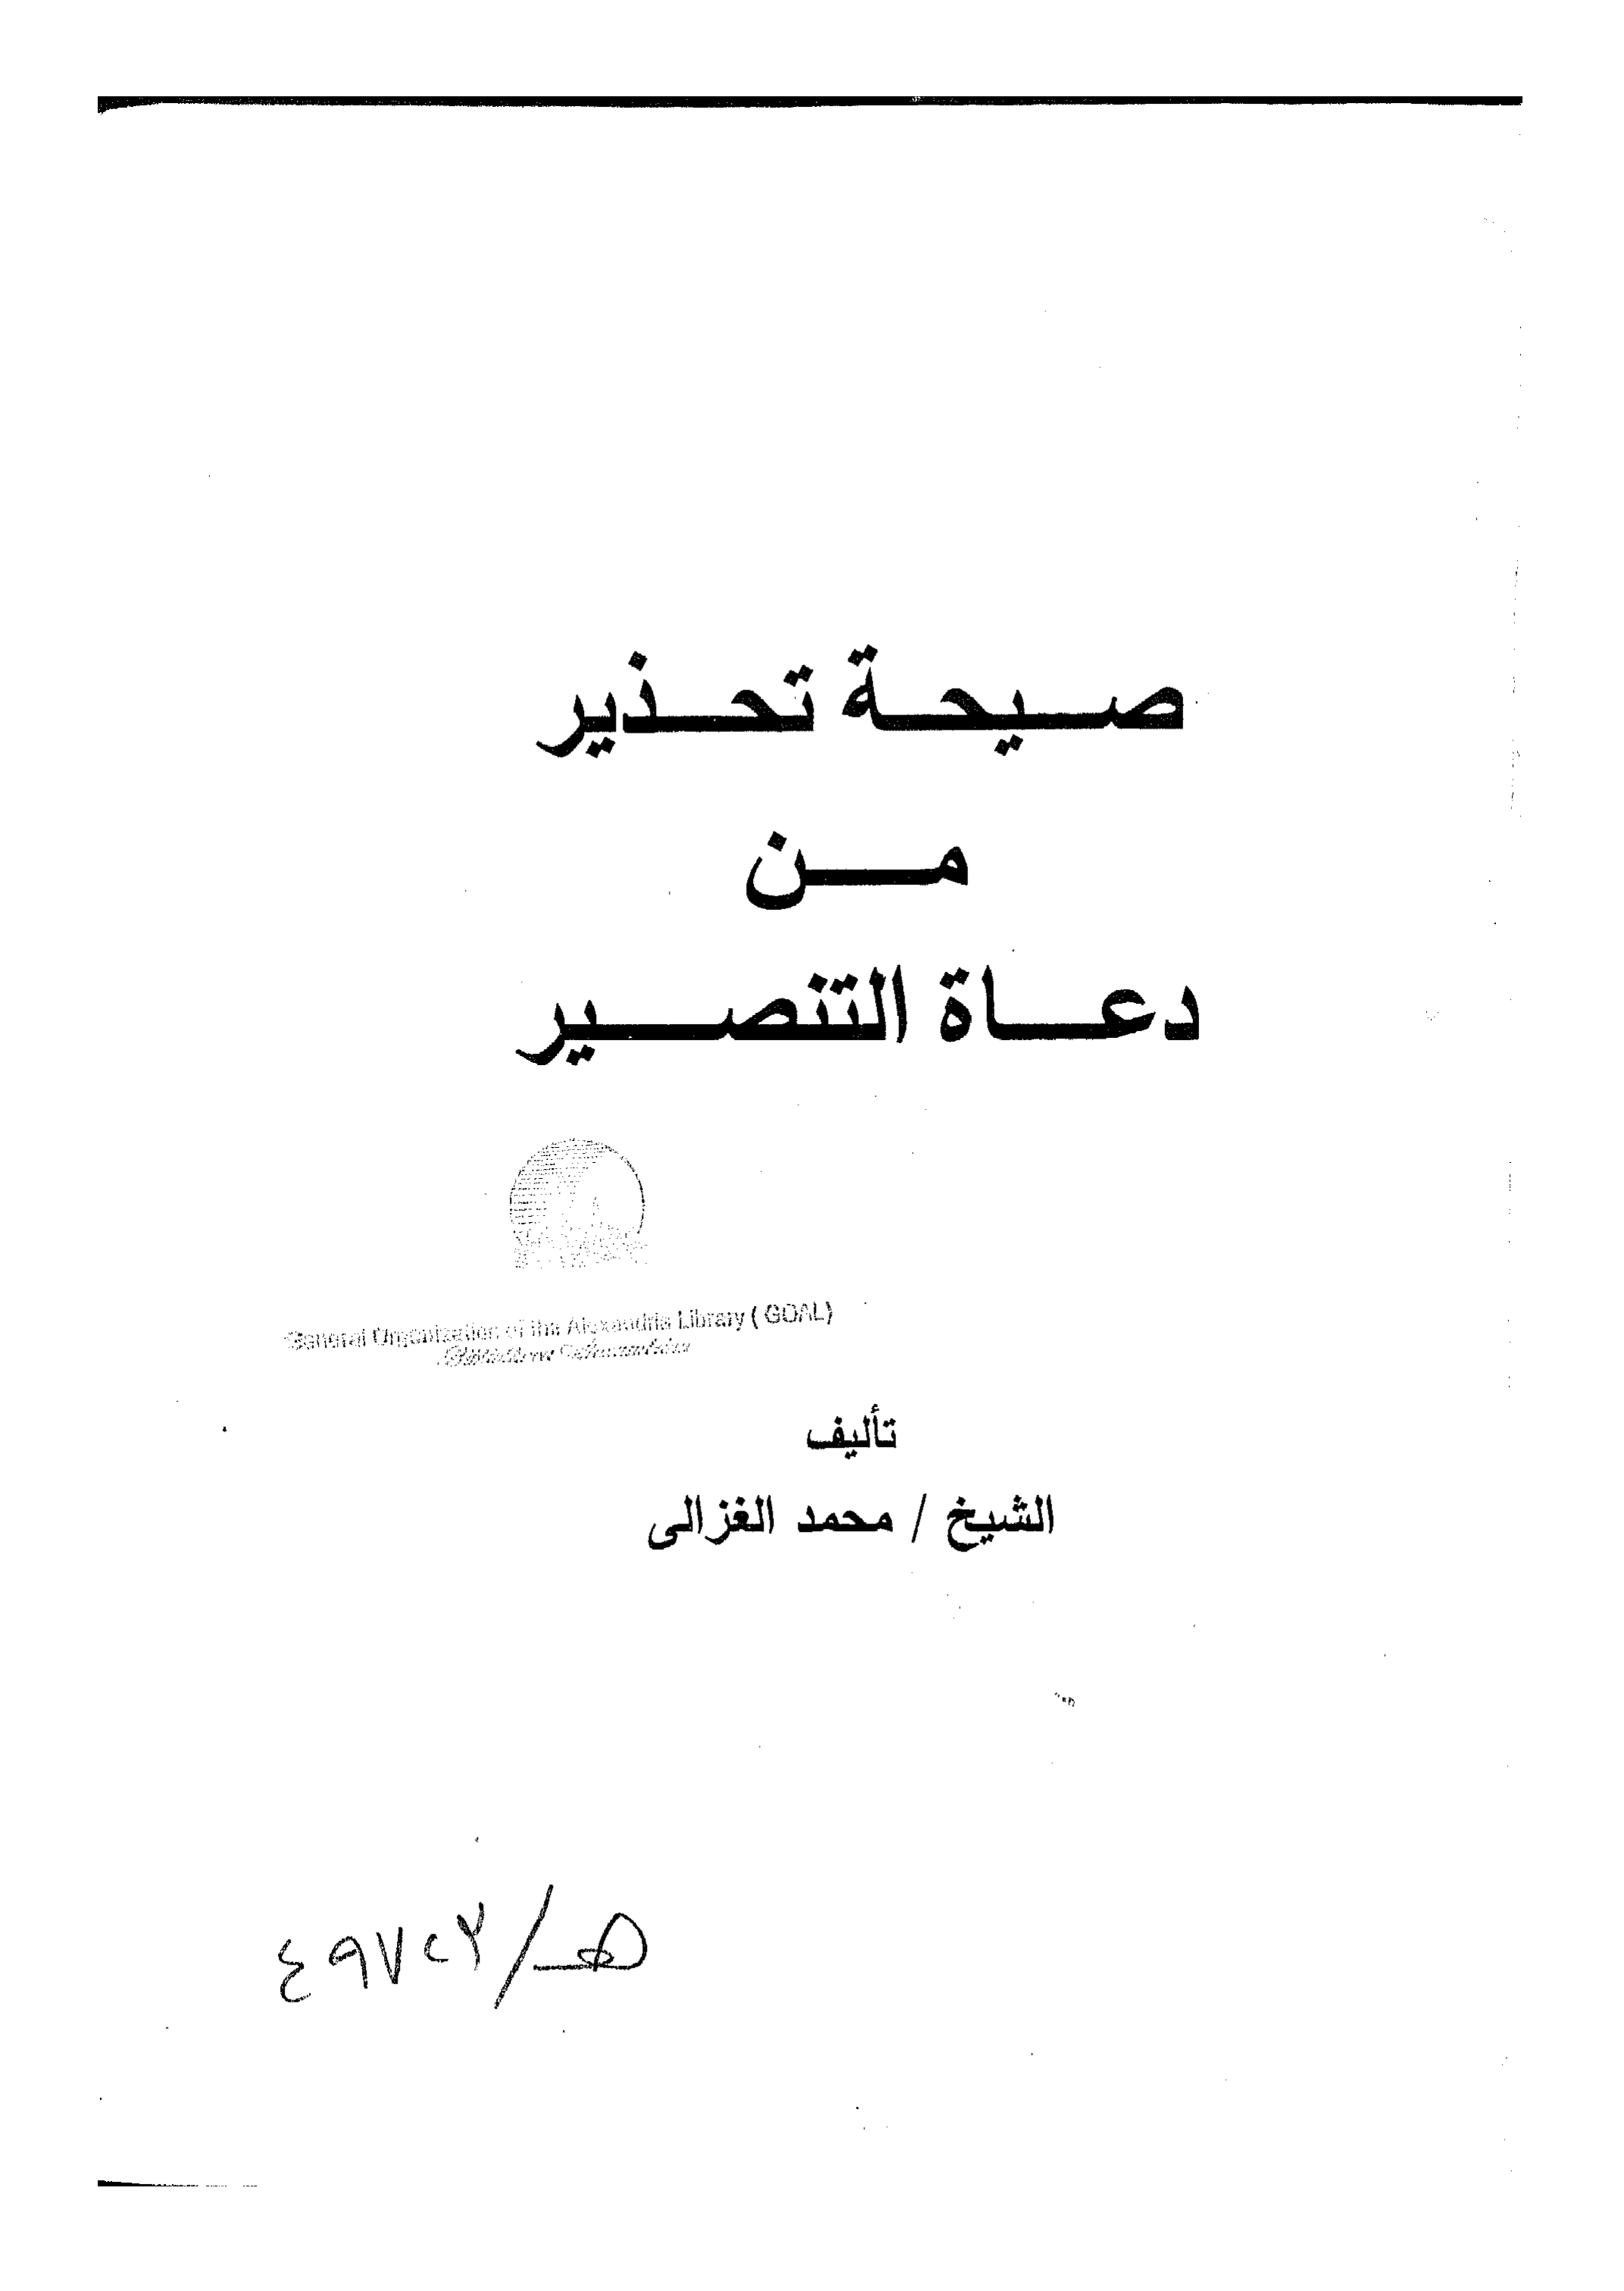 صيحة تحذير
من
دعاة التنصير
General Organization of the Alexandria Library ( GOAL)
Bibliotheca Alexandrina
تأليف
الشيخ / محمد الغزالى
هـ/٤٩٧٢٢